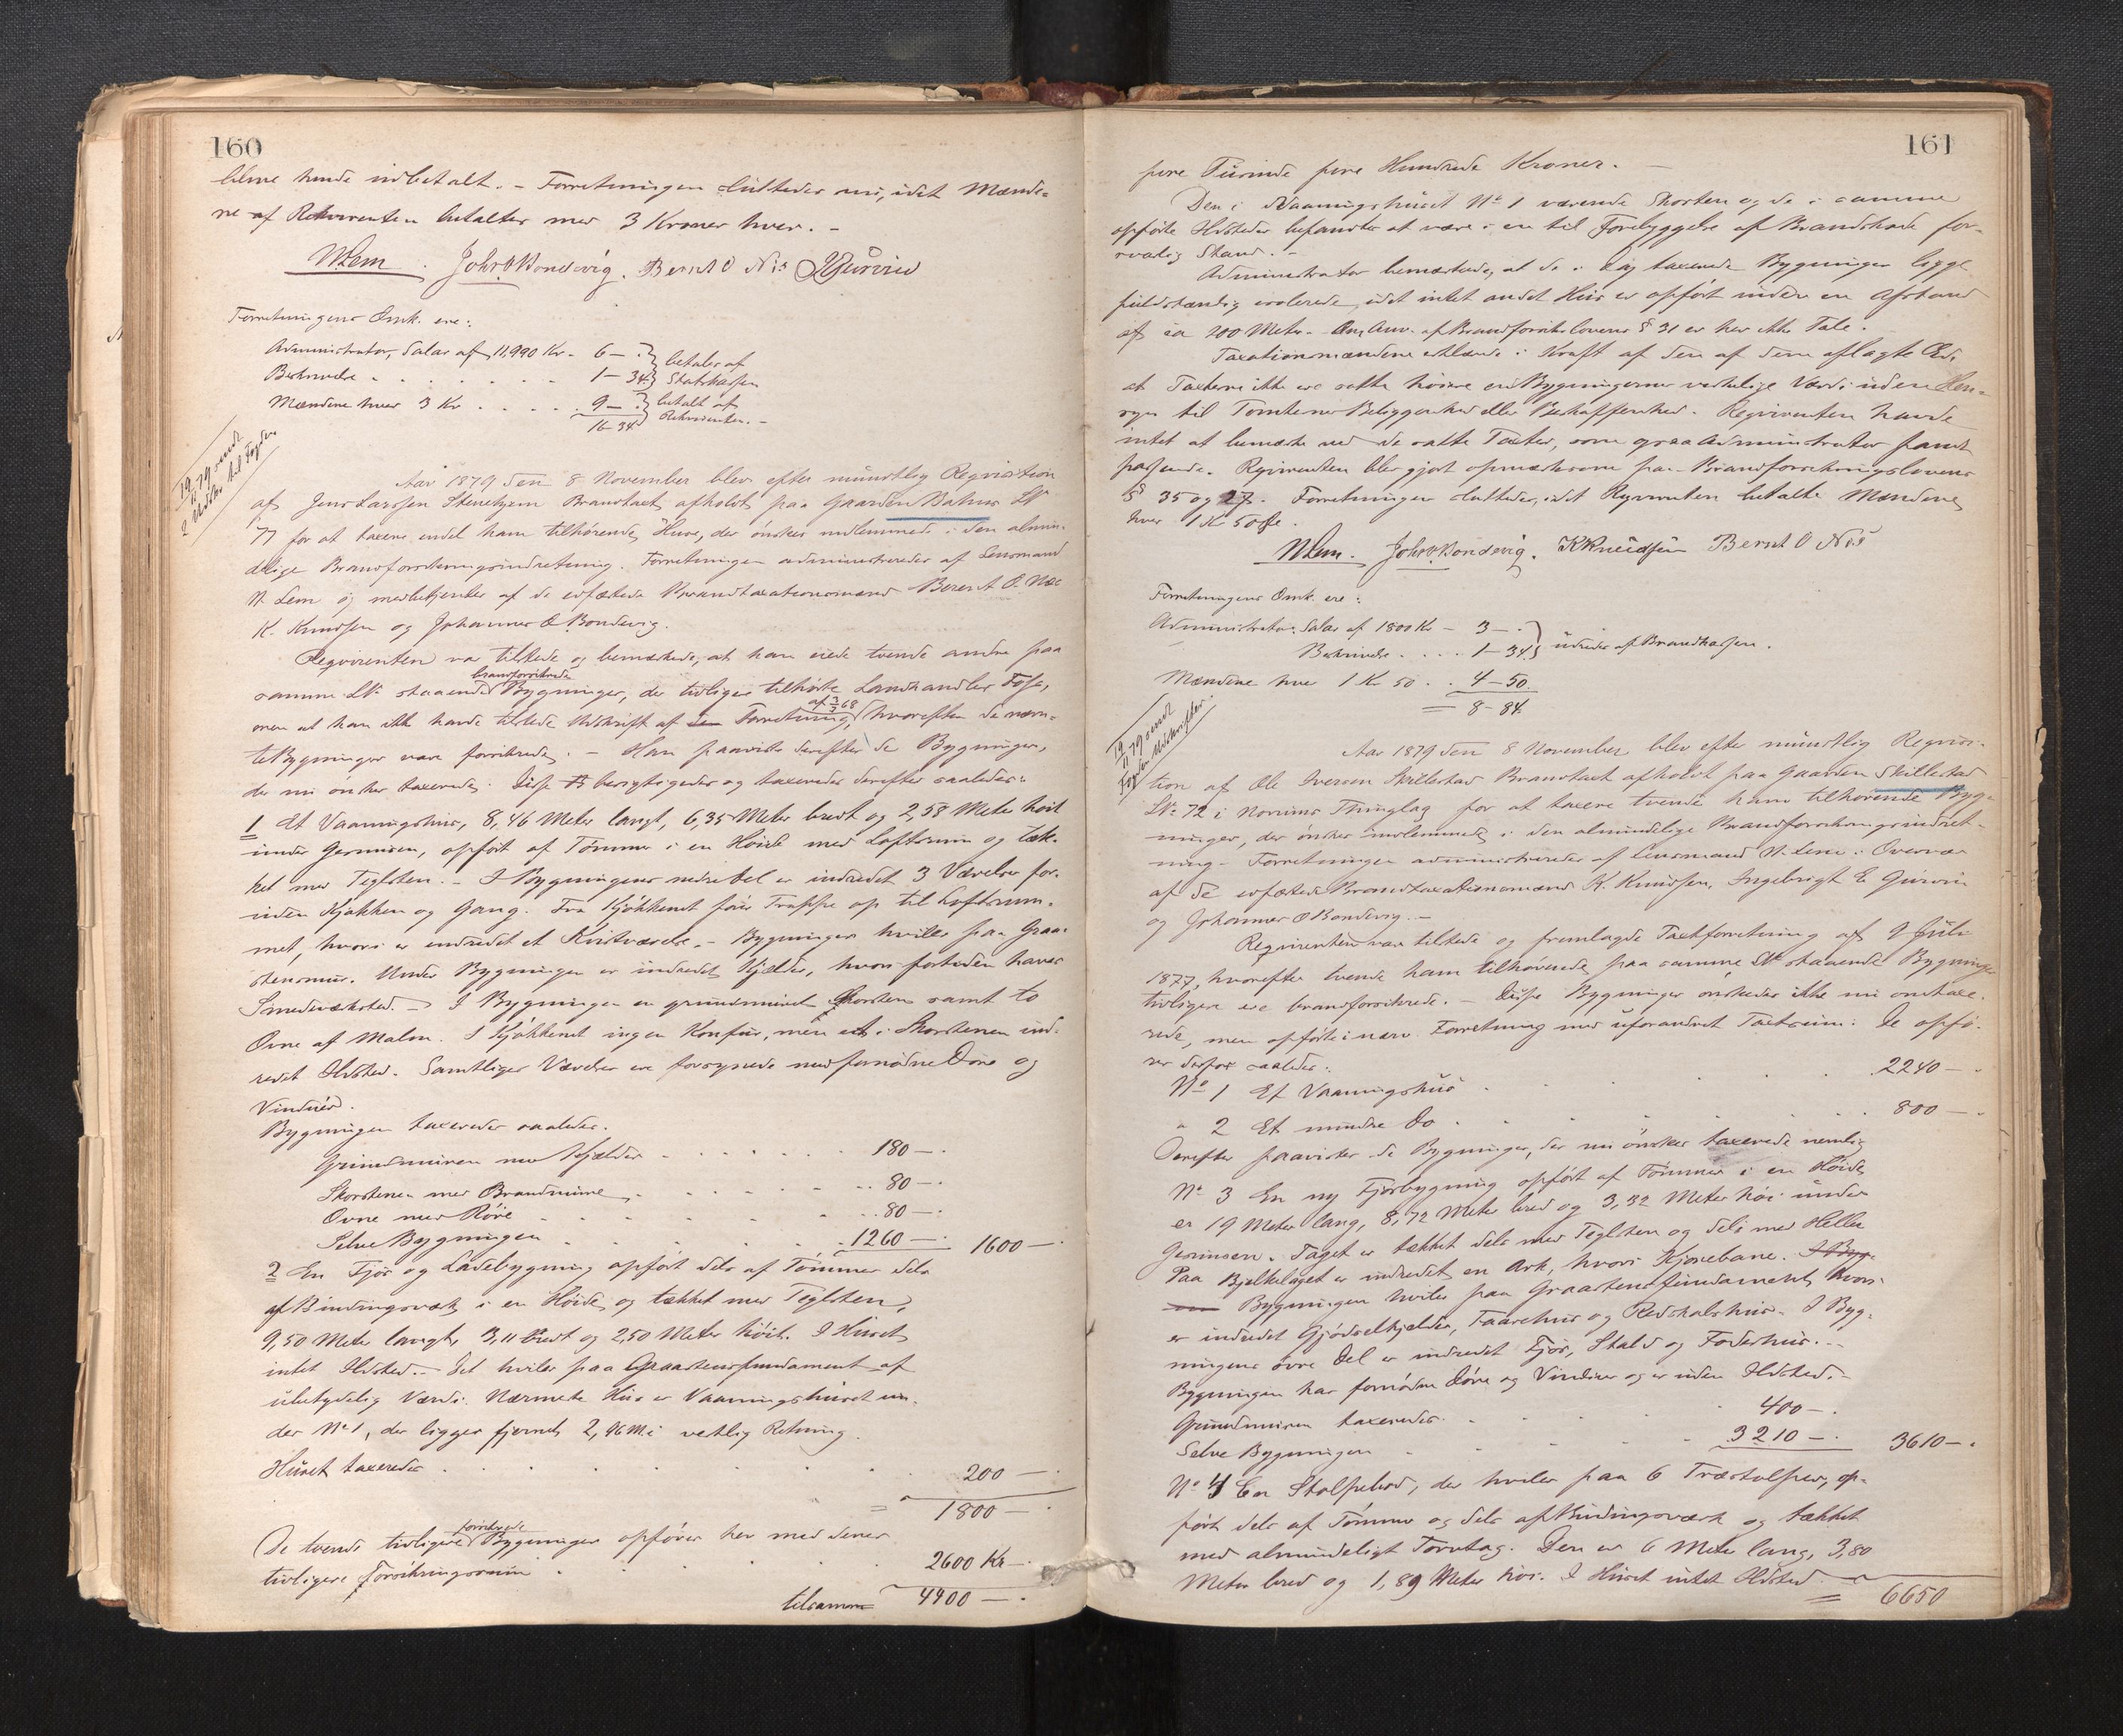 160
blive hende indbetalt. - Forretningen sluttedes nu, idet Mænde-
ne af Rekvirenten betaltes med 3 Kroner hver. -
N Lem . Joh. O Bondevig . Bernt O Nes
Forretningens Omk. ere:
Administrator, Salar af 11,990 Kr. 6 - . betales af
Beskrivelse . . . . . . 1 - 34. Statskassen
Mændene hver 3 Kr . . . . . 9 - . betalt af
16 - 34. Rekvirenten. -
19/11 79 sendt
2 Udskr. til Fogden
Aar 1879 den 8 November blev efter mundtlig Reqvisition
af Jens Larssen Stenehjem Brandtaxt afholdt paa Gaarden L№
77 for at taxere endel ham tilhørende Huse, der ønskes indlemmede i den almin-
delige Brandforsikringsindretning. Forretningen administreredes af Lensmand
N. Lem og medbetjentes af de edfæstede Brandtaxationsmænd Berent O. Nes
K. Knudsen og Johannes O Bondevig.
Reqvirenten var tilstede og bemærkede, at han eiede tvende andre paa
samme L№ staaende brandforsikrede Bygninger, der tidligere tilhørte Landhandler Foss,
men at han ikke havde tilstede Udskrift af den Forretning af 2/3 68, hvorefter de nævn-
te Bygninger vare forsikrede. - Han paaviste derefter de Bygninger,
der nu ønskes taxerede. Disse besigtigedes og taxeredes derefter saaledes:
1 Et Vaaningshus, 8,46 Meter langt, 6,35 Meter bredt og 2,58 Meter høit
under Gesimsen, opført af Tømmer i en Høide med Loftsrum og tæk-
ket med Teglsten. - I Bygningens nedre Del er indredet 3 Værelser for-
uden Kjøkken og Gang. Fra Kjøkkenet fører Trappe op til Loftsrum-
met, hvori er indredet et Kvistværelse. - Bygningen hviler paa Graa-
stensmur. Under Bygningen er indredet Kjælder, hvori fortiden haves
Smedeværksted. - I Bygningen en grundmuret Skorsten samt to
Ovne af Malm. I Kjøkkenet ingen Komfur, men et i Skorstenen ind-
redet Ildsted. Samtlige Værelser ere forsynede med fornødne Døre og
Vinduer.
Bygningen taxeredes saaledes.
Grundmuren med Kjælder . . . . . . . 180 - .
Skorstenen med Brandmure . . . . . . 80 - .
Ovne med Røre . . . . . . 80 - .
Selve Bygningen . . . . 1260 - . 1600 - .
2 En Fjøs og Ladebygning opført dels af Tømmer dels
af Bindingsværk i en Høide og tækket med Teglsten,
9,50 Meter langt, 3,11 bredt og 2,50 Meter høit. I Huset
intet Ildsted. - Det hviler paa Graastensfundament af
ubetydelig Værdi. Nærmeste Hus er Vaaningshuset un-
der №1, der ligger fjernet 2,96 M i vestlig Retning.
Huset taxeredes . . . . . . 200 - .
= 1800 - .
De tvende tidligere forsikrede Bygninger opføres her med deres
tidligere Forsikringssum . . . . 2600 Kr - .
tilsammen 4400 - .
161
fire Tusinde fire Hundrede Kroner. -
Den i Vaaningshuset № 1 værende Skorsten og de i samme
opførte Ildsteder befandtes at være i en til Forebyggelse af Brandskade for-
svarlig Stand. -
Administrator bemærkede, at de i dag taxerede Bygninger ligge
fuldstændig isolerede, idet intet andet Hus er opført inden en Afstand
af ca 100 Meter. Om Anv. af Brandforsikr. lovens § 31 er her ikke Tale.
Taxationsmændene erklærede i Kraft af den af dem aflagte Ed,
at Taxterne ikke ere satte høiere end Bygningernes virkelige Værdi uden Hen-
syn til Tomtens Beliggenhed eller Beskaffenhed. Reqvirenten havde
intet at bemærke ved de satte Taxter, som ogsaa Administrator fandt
passende. Reqvirenten blev gjort opmærksom paa Brandforsikringslovens
§§ 35 og 27. Forretningen sluttedes, idet Reqvirenten betalte Mændene
hver 1 Kr 50 Øre.
N Lem. Joh. O Bondevig. K Knudsen Bernt O Nes
Forretningens Omk. ere:
Administrator: Salar af 1800 Kr - 3 - .
Beskrivelse . . . . 1 - 34. udredes af Brandkassen.
Mændene hver 1 Kr 50 . . 4 - 50.
= 8 - 84.
19/11 79 sendt
Fogden Udskrifter
Aar 1879 den 8 November blev efter mundtlig Reqvisi-
tion af Ole Iversen Skillestad Brandtaxt afholdt paa Gaarden Skillestad
L№ 72 i Norums Thinglag for at taxere tvende ham tilhørende Byg-
ninger, der ønskes indlemmet i den almindelige Brandforsikringsindret-
ning. Forretningen administreredes af Lensmand N. Lem i Overvær
af de edfæstede Brandtaxationsmænd K. Knudsen, Ingebrigt E Gurvin
og Johannes O Bondevig. -
Reqvirenten var tilstede og fremlagde Taxtforretning af 9 Juli
1877, hvorefter tvende ham tilhørende paa samme L№ staaende Bygninger
tidligere ere brandforsikrede. - Disse Bygninger ønskedes ikke nu omtaxe-
rede, men opførte i nærv. Forretning med uforandret Taxtsum. De opfø-
res derfor saaledes:
№ 1 Et Vaaningshus . . . . 2240 - .
" 2 Et mindre Do . . . . . 800 - .
Derefter paavistes de Bygninger, der nu ønskes taxerede nemlig
№ 3 En ny Fjøsbygning opført af Tømmer i en Høide,
er 19 Meter lang, 8,72 Meter bred og 3,32 Meter høi under
Gesimsen. Taget er tækket dels med Teglsten og dels med Heller
Paa Bjelkelaget er indredet en Ark, hvori Kjørebane. I Byg-
Bygningen hviler paa Graastensfundament, hvori
er indredet Gjødselkjælder, Faarehus og Redskabshus. I Byg-
ningens øvre Del er indredet Fjøs, Stald og Foderhus. -
Bygningen har fornødne Døre og Vinduer og er uden Ildsted. -
Grundmuren taxeredes . . . . 400 - .
Selve Bygningen . . . . . 3210 - . 3610 - .
№ 4 En Stolpebod, der hviler paa 6 Træstolper, op-
ført dels af Tømmer og dels af Bindingsværk og tækket
med almindeligt Torvtag. Den er 6 Meter lang, 3,80
Meter bred og 1,89 Meter høi. I Huset intet Ildsted
= 6650